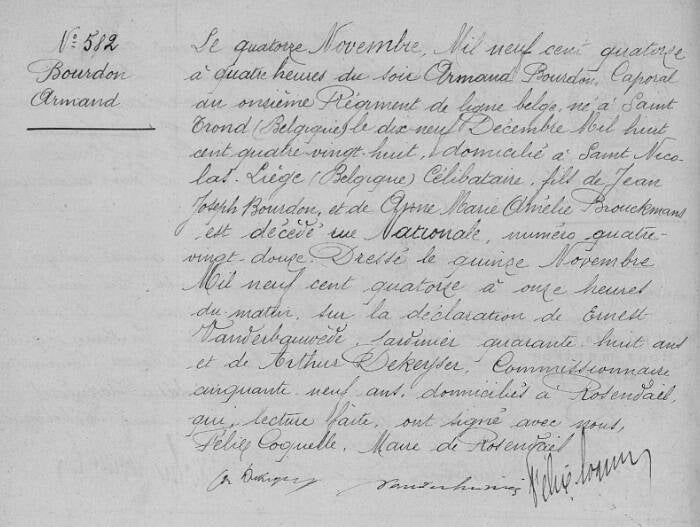 Nº 582
Bourdon
Armand
Le quatorze Novembre, Mil neuf cent quatorze
à quatre heures du soir Armand Bourdon, Caporal
au onzième Régiment de ligne belge, né à Saint
Trond (Belgique) le dix neuf Décembre Mil huit
cent quatre-vingt-huit, domicilié à Saint Nico-
las-Liège (Belgique) Célibataire, fils de Jean
Joseph Bourdon, et de Anne Marie Amélie Brouckmans
est décédé rue Nationale, numéro quatre-
vingt-douze. Dressé le quinze Novembre
Mil neuf cent quatorze à onze heures
du matin, sur la déclaration de Ernest
Vanderbauwède, Jardinier quarante-huit ans
et de Arthur Dekeyser, Commissionnaire
cinquante neuf ans, domiciliés à Rosendaël,
qui, lecture faite, ont signé avec nous,
Félix Coquelle, Maire de Rosendaël